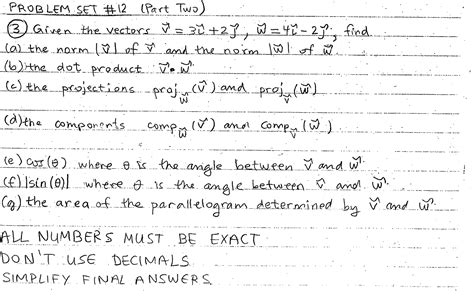 PROBLEM SET #12 (Part Two)
③ Given the vectors v⃗ = 3i⃗ + 2j⃗, w⃗ = 4i⃗ - 2j⃗, find
(a) the norm |v⃗| of v⃗ and the norm |w⃗| of w⃗.
(b) the dot product v⃗ • w⃗.
(c) the projections proj_w⃗ (v⃗) and proj_v⃗ (w⃗)
(d) the components comp_w⃗ (v⃗) and comp_v⃗ (w⃗)
(e) cos(θ) where θ is the angle between v⃗ and w⃗.
(f) |sin(θ)| where θ is the angle between v⃗ and w⃗.
(g) the area of the parallelogram determined by v⃗ and w⃗.
ALL NUMBERS MUST BE EXACT
DON'T USE DECIMALS
SIMPLIFY FINAL ANSWERS.